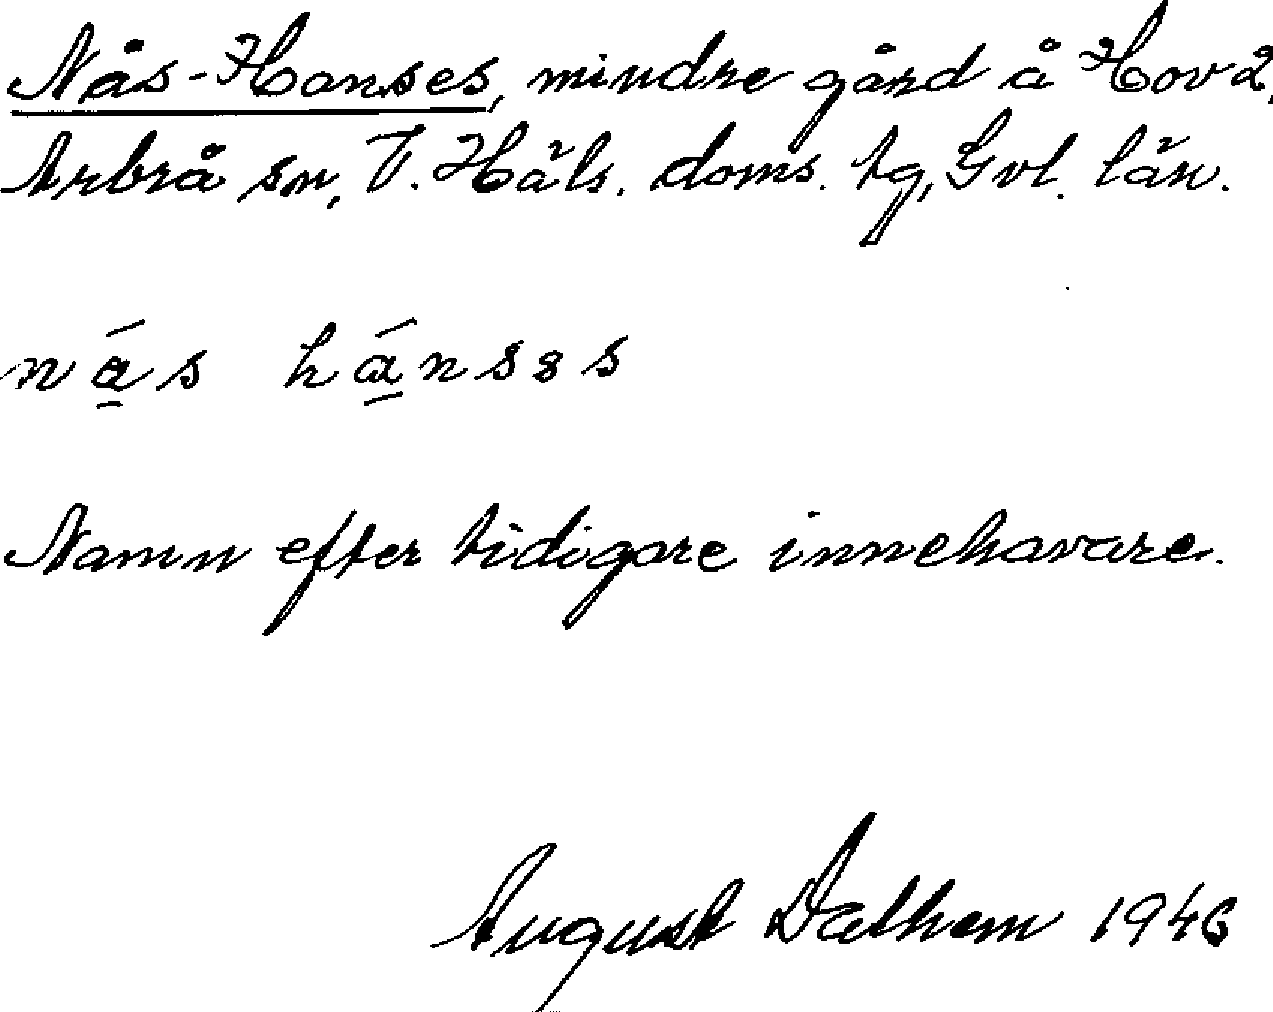 Nås-Hanses, mindre gård å Hov 2,
Arbrå sn, V. Häls. doms. tg, Gvl. län.
nás hánses
Namn efter tidigare innehavare.
August Dalham 1946